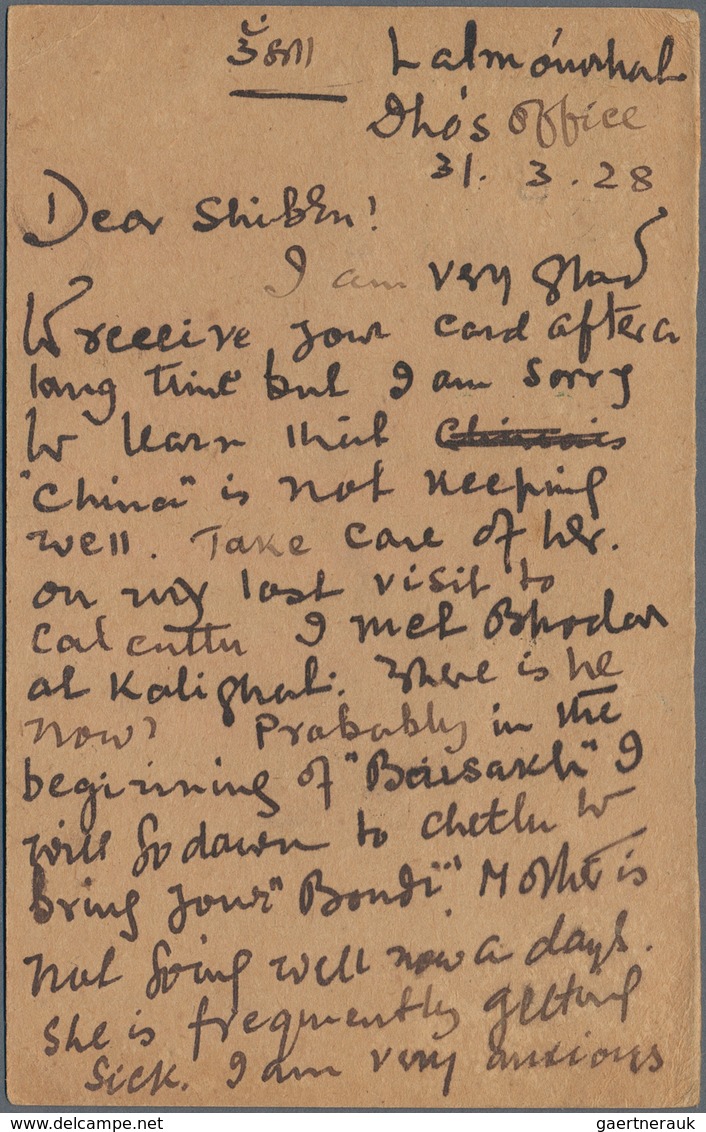 Lalmonirhat
Dho's office
31. 3. 28
Dear Shiben!
I am very glad
to receive your card after a
long time but I am sorry
to learn that
"China" is not keeping
well. Take care of her.
on my last visit to
Calcutta I met Bhodar
at Kalighat. Where is he
now? Probably in the
beginning of "Baisakh" I
will go down to Chetla to
bring your "Bondi". Mother is
not going well now a days.
She is frequently getting
sick. I am very anxious
gaertnerauk